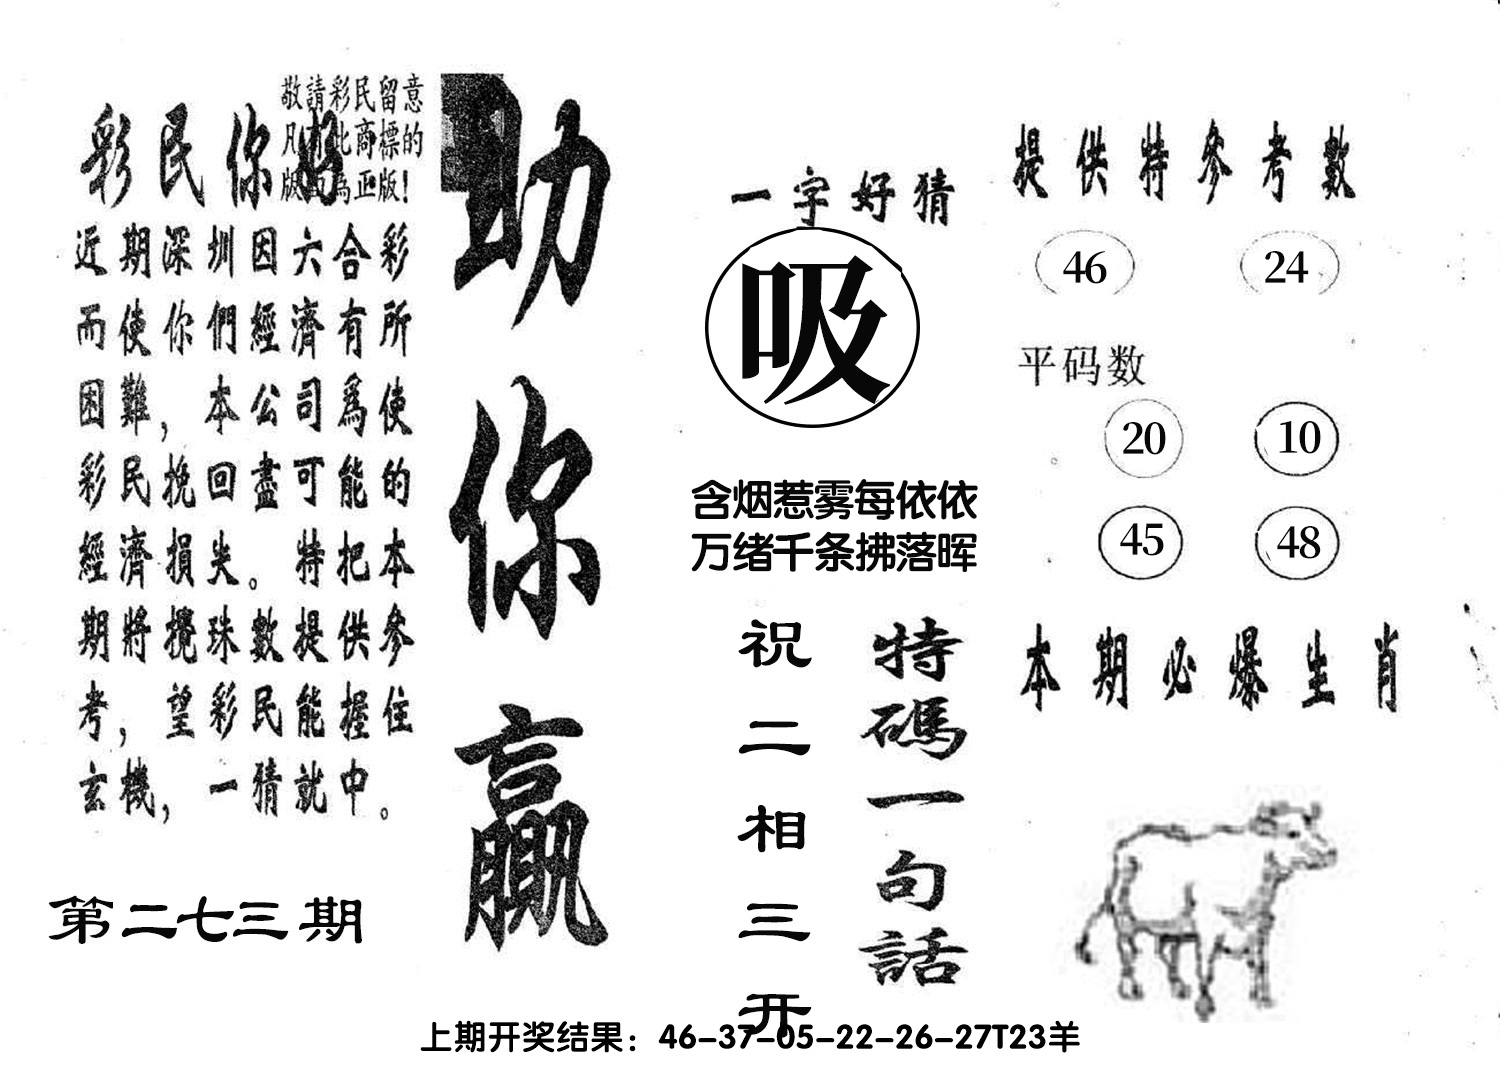 敬請彩民留意
凡有此商標的
版面為正版!
彩民你好
近期深圳因六合彩
而使你們經濟有所
困難，本公司爲使
彩民挽回盡可能的
經濟損失。特把本
期將攪珠數提供參
考，望彩民能握住
玄機，一猜就中。
第二七三期
助你贏
一字好猜
吸
含烟惹雾每依依
万绪千条拂落晖
特碼一句話
祝二相三开
提供特參考數
46 24
平码数
20 10
45 48
本期必爆生肖
上期开奖结果：46-37-05-22-26-27T23羊